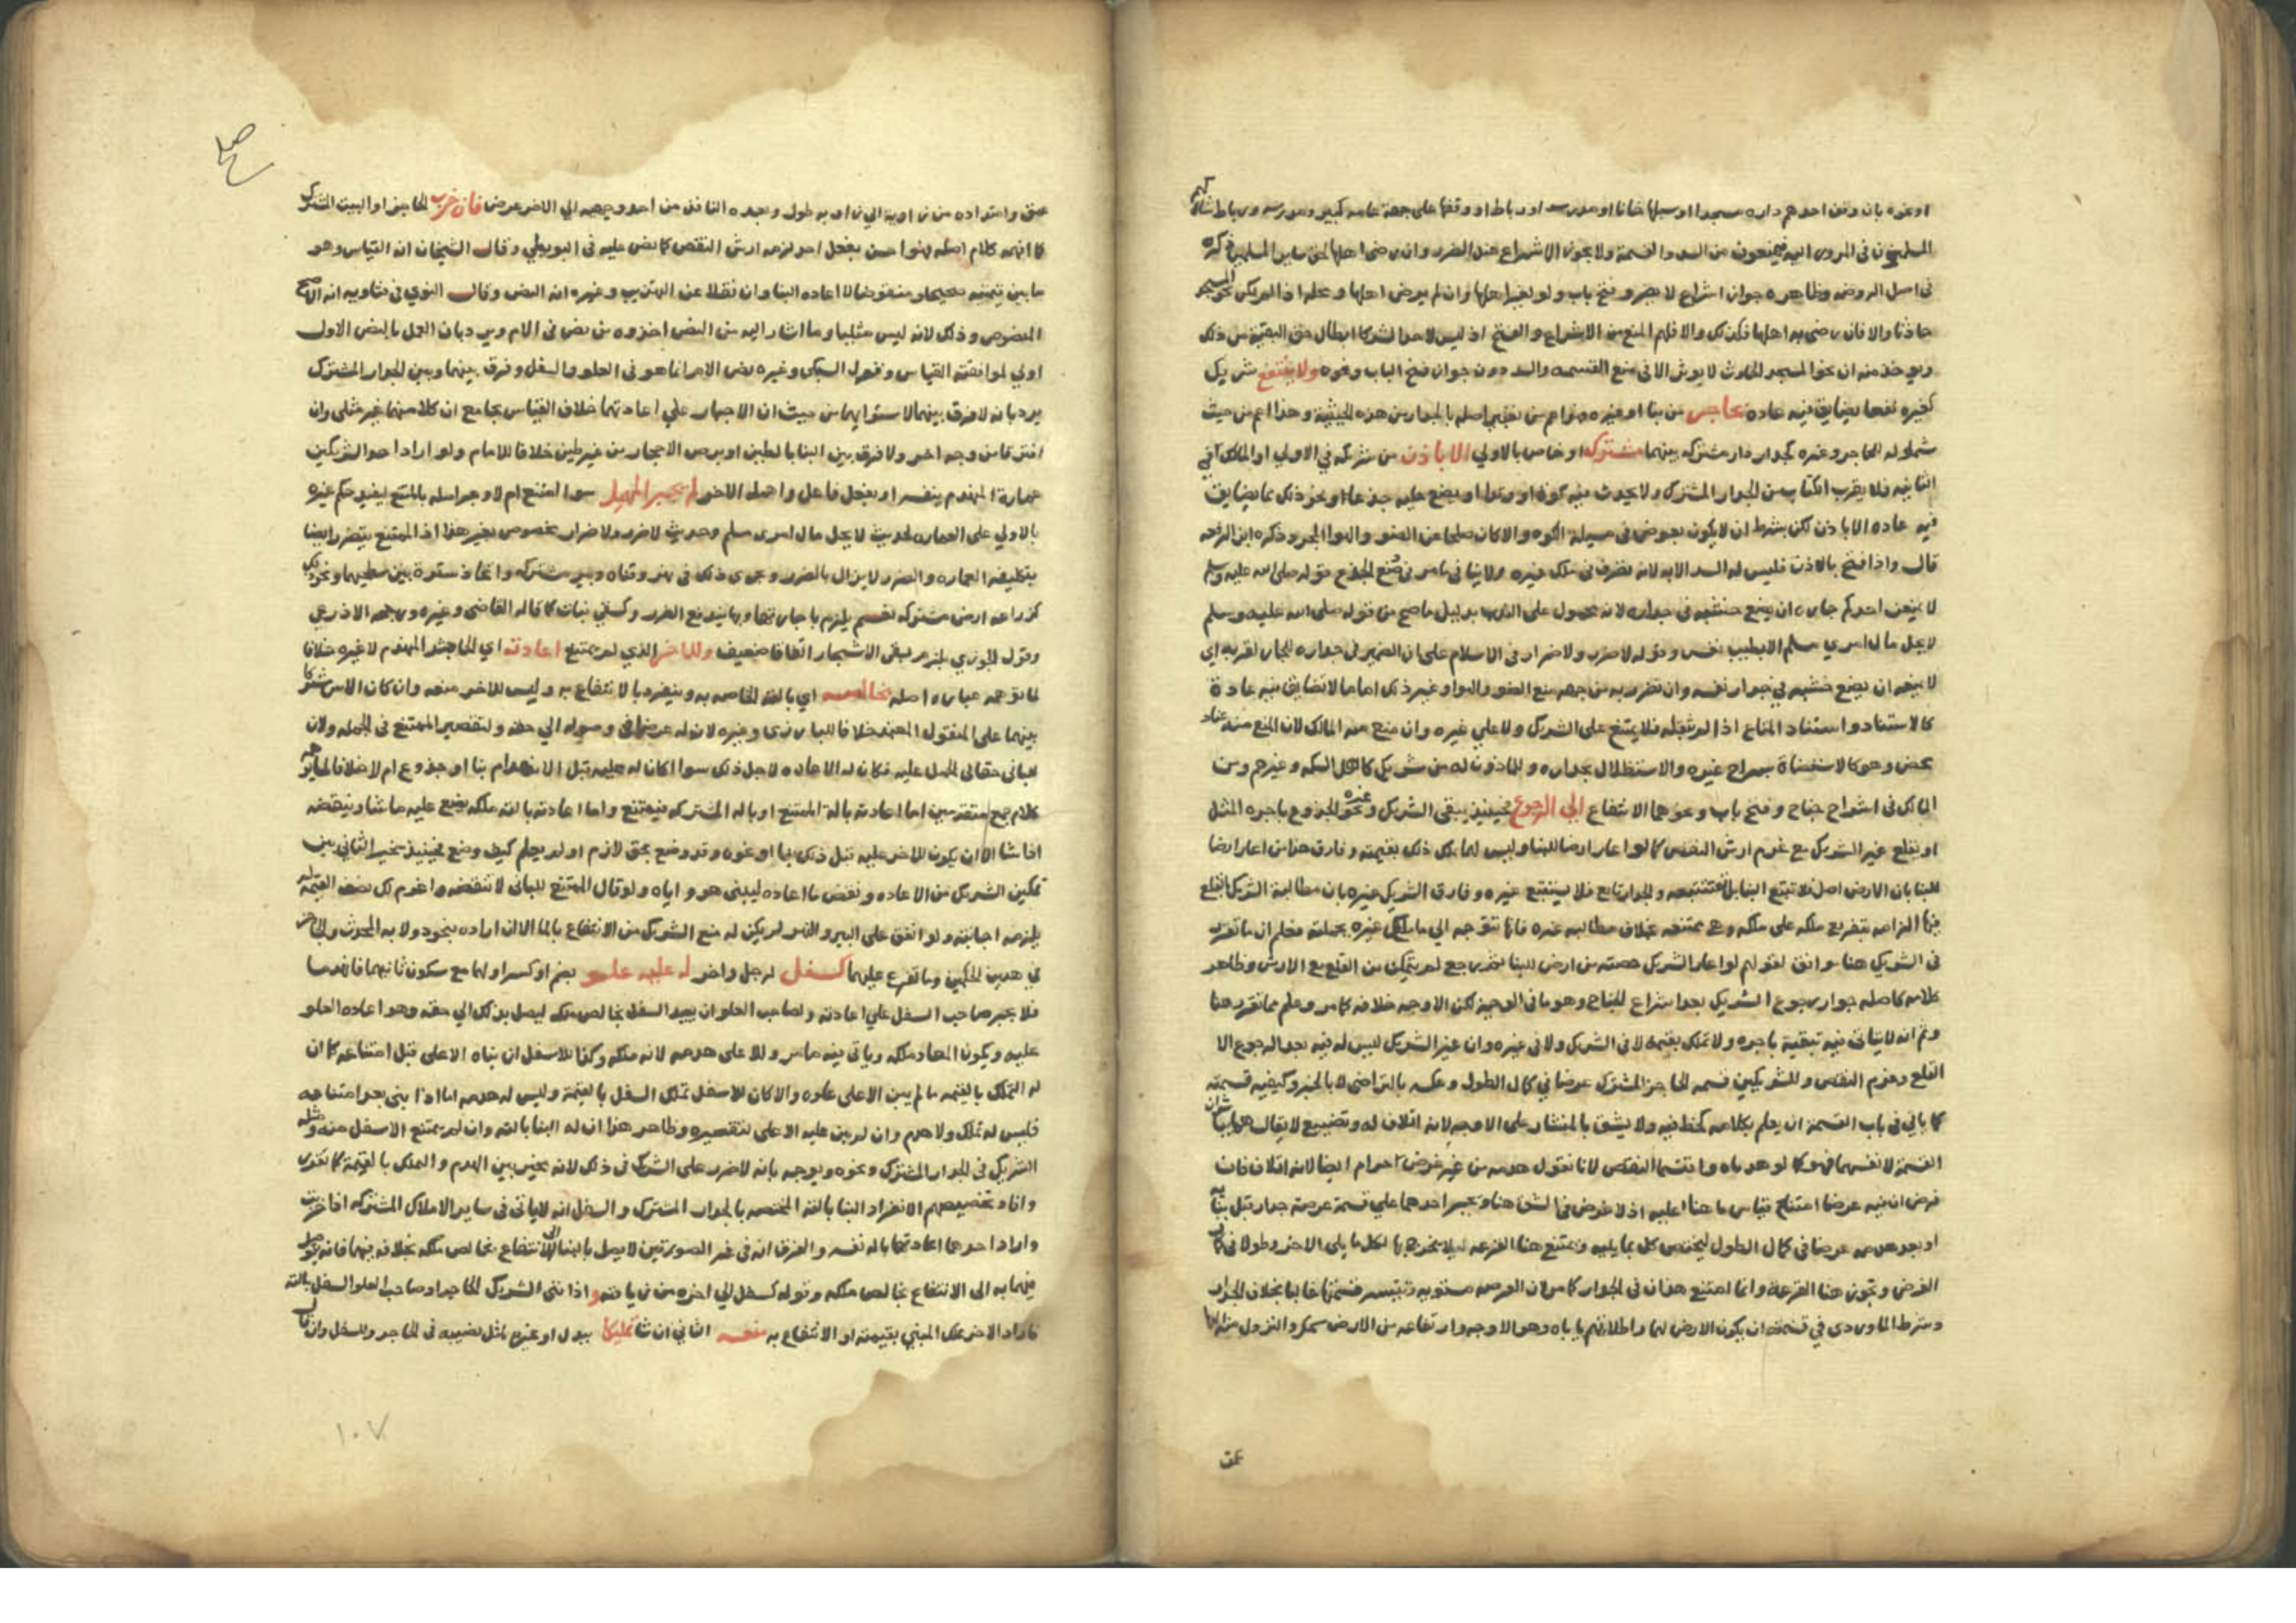 او نحوه بان وقف احدهم داره مسجدا او سبلها خانا او مدرسه او رباط او وقفها على جهة عامه كبير ومدرسه ورباط شاركهم
المسلمون في المرور اليه فيمنعون من السد والقسمة ولا يجوز الاشراع عند الضرر وان رضى اهلها لحق ساير المسلمين ذكره
في اصل الروضه وظاهره جواز اشراع لا يضر وفتح باب ولو لغير اهلها وان لم يرض اهلها ومحله اذا لم يكن نحو المسجد
حادثا والا فان رضى به اهلها فكذلك والا فلهم المنع من الاشراع والفتح اذ ليس لاحد الشركا ابطال حق البقية من ذلك
ويوخذ منه ان نحو المسجد الحادث لا يوثر الا في منع القسمه والسد دون جواز فتح الباب ونحوه ولا ينتفع شريك
كغيره نفعا يضايق فيه عادة بحاجز من بنا او غيره فهو اعم من تعبير اصله بالجدار من هذه الحيثية وهذا اعم من حيث
شموله للحاجز وغيره كجدار دار مشتركه بينهما مشترك او خاص بالاولى الا باذن من شريكه في الاولى او المالك في
الثانيه فلا يقرب الكتاب من الجدار المشترك ولا يحدث فيه كوة او وتدا او يضع عليه جذعا او نحو ذلك مما يضايق
فيه عاده الا باذن لكن بشرط ان لا يكون بعوض في مسيلة الكوه والا كان صلحا عن الضو والهوا المجرد ذكره ابن الرفعه
قال واذا فتح بالاذن فليس له السد الا به لانه تصرف في ملك غيره ولا ينافي ما مر في وضع الجذع قوله صلى الله عليه وسلم
لا يمنعن احدكم جاره ان يضع خشبه في جداره لانه محمول على الندب بدليل ما صح من قوله صلى الله عليه وسلم
لا يحل مال امرى مسلم الا بطيب نفس وقوله لا ضرر ولا ضرار في الاسلام على ان الضمير في جداره للجار لقربه اي
لا يمنعه ان يضع خشبه في جدار نفسه وان تضرر به من جهه منع الضو والهوا وغير ذلك اما ما لا تضايق فيه عادة
كالاستناد واستناد المتاع اذا لم يثقله فلا يمتنع على الشريك ولا على غيره وان منع منه المالك لان المنع منه عناد
محض وهو كالاستضاة بسراج غيره والاستظلال بجداره وللماذون له من شريك كاهل السكه وغيرهم ومن
المالك في اشراع جناح وفتح باب ونحوهما الانتفاع الى الرجوع فحينيذ يبقى الشريك وغيره نحو الجذوع باجره المثل
او يقلع غير الشريك مع غرم ارش النقص كما لو اعار ارضا للبنا وليس له تملك ذلك بقيمته وفارق هذا من اعار ارضا
للبنا بان الارض اصل فلا تتبع البنا بل تستتبعه والجدار تابع فلا يستتبع غيره وفارق الشريك غيره بان مطالبة الشريك بالقلع
فيها الزامه بتفريغ ملكه على ملكه وهي ممتنعه بخلاف مطالبه غيره فانها تتوجه الى مالك غيره بجملته فعلم ان ما تقرر
في الشريك هنا موافق لقولهم لو اعار الشريك حصته من ارض للبنا ثم رجع لم يتمكن من القلع مع الارش وظاهر
كلامه كاصله جواز رجوع الشريك بعد اشراع الجناح وهو ما في الوجيز لكن الاوجه خلافه كما مر وعلم مما تقرر هنا
وثم انه لا يتاتى فيه تبقية باجره ولا تملك بقيمه لا في الشريك ولا في غيره وان غير الشريك ليس له فيه بعد الرجوع الا
القلع وغرم النقص وللشريكين قسمه الحاجز المشترك عرضا في كمال الطول وعكسه بالتراضى لا بالجبر وكيفيه قسمته
كما ياتي في باب القسمة ان يعلم بكلامه كخط فيه ولا يشق بالمنشار على الاوجه لانه اتلاف له وتضييع لا يقال هما يباشران
القسمة لانفسهما فهو كما لو هدماه واقتسما النقص لانا نقول هدمه من غير غرض حرام ايضا لانه اتلاف فان
فرض ان فيه غرضا امتنع قياس ما هنا عليه اذ لا غرض في الشق هنا ويجبر احدهما على قسمة عرصة جدار قبل بنايه
او بعد هدمه عرضا في كمال الطول ليختص كل بما يليه وتمتنع هنا القرعه ليلا يخرج بها لكل ما يلى الاخر وطولا في كمال
العرض وتجوز هنا القرعة وانما امتنع هذان في الجدار كما مر لان العرصه مستويه وتتيسر قسمتها غالبا بخلاف الجدار
وشرط الماوردى في قسمته ان يكون الارض لهما واطلاقهم ياباه وهو الاوجه وارتفاعه من الارض سمك والنزول منه اليها
عمق
عمق وامتداده من زاوية الى زاويه طول وبعده النافذ من احد وجهيه الى الاخر عرض فان خرب الحاجز او البيت المشترك
كما افهمه كلام اصله فهو احسن بفعل احد لزمه ارش النقص كما نص عليه في البويطي وقال الشيخان ان القياس وهو
ما بين قيمته صحيحا ومنقوضا لا اعاده البنا وان نقلا عن التهذيب وغيره انه النص وقال النووي في فتاويه انه الاصح
المنصوص وذلك لانه ليس مثليا وما اشار اليه من النص اخذوه من نص في الام ويرد بان العمل بالنص الاول
اولى لموافقته القياس وقول السبكى وغيره نص الام انما هو في العلو والسفل وفرق بينهما وبين الجدار المشترك
يرد بانه لا فرق بينهما لاستوايهما من حيث ان الاجبار على اعادتهما خلاف القياس بجامع ان كلا منهما غير مثلى وان
افترقا من وجه اخر ولا فرق بين البنا بالطين او برص الاحجار من غير طين خلافا للامام ولو اراد احد الشريكين
عمارة المنهدم بنفسه او بفعل فاعل واهمله الاخر لم يجبر المهمل سوا امتنع ام لا وتعبير اصله بالممتنع ليفيد حكم غيره
بالاولى على العماره لحديث لا يحل مال امرى مسلم وحديث لا ضرر ولا ضرار مخصوص بغير هذا اذ الممتنع يتضرر ايضا
بتكليفه العماره والضرر لا يزال بالضرر ويجرى ذلك في نهر وقناه وبير مشتركه واتخاذ سترة بين سطحيهما ونحو ذلك
كزراعه ارض مشتركه نعم يلزم باجارتها وبها يندفع الضرر وكسقي نبات كما قاله القاضى وغيره ورجحه الاذرعي
وقول الجوزي يلزم بسقى الاشجار اتفاقا ضعيف وللاخر الذي لم يمتنع اعادته اي الحاجز المنهدم لا غيره خلافا
لما توهمه عباره اصله بخالصه اي بالته الخاصه به وينفرد بالانتفاع به وليس للاخر منعه وان كان الاس مشتركا
بينهما على المنقول المعتمد خلافا للبارزى وغيره لان له غرضا في وصوله الى حقه ولتقصير الممتنع في الجمله ولان
للباني حقا في الحمل عليه فكان له الاعاده لاجل ذلك سوا كان له عليه قبل الانهدام بنا او جذوع ام لا خلافا لما يوهمه
كلام جمع متقدمين اما اعادته بالة الممتنع او باله المشتركه فيمتنع واما اعادته بالته ملكه يضع عليه ما شا وينقضه
اذا شا الا ان يكون للاخر عليه قبل ذلك بنا او نحوه وقد وضع بحق لازم او لم يعلم كيف وضع فحينيذ يخير الثاني بين
تمكين الشريك من الاعاده ونقض ما اعاده ليبني هو واياه ولو قال الممتنع للباني لا تنقضه واغرم لك نصف القيمة لم
يلزمه اجابته ولو انفق على البير والنهر لم يكن له منع الشريك من الانتفاع بالما الا ان اراده بنحو دولابه المحدث وللاخر
في هذين الحكمين وما تفرع عليهما كسفل لرجل واخر له عليه علو بضم او كسر اولهما مع سكون ثانيهما فانهدما
فلا يجبر صاحب السفل على اعادته ولصاحب العلو ان يعيد السفل بخالص ملكه ليصل بذلك الى حقه وهو اعاده العلو
عليه ويكون المعاد ملكه وياتى فيه ما مر وللاعلى هدمه لانه ملكه وكذا للاسفل ان بناه الاعلى قبل امتناعه كان
له التملك بالقيمه ما لم يبن الاعلى علوه والا كان للاسفل تملك السفل بالقيمة وليس له هدمه اما اذا بنى بعد امتناعه
فليس له تملك ولا هدم وان لم يبن عليه الاعلى لتقصيره وظاهر هذا ان له البنا بالته وان لم يمتنع الاسفل منه ومثله
الشريك في الجدار المشترك ونحوه ويوجه بانه لا ضرر على الشريك في ذلك لانه مخير بين الهدم والتملك بالقيمة كما تقرر
وافاد تخصيصهم الانفراد بالبنا بالته المختصه بالجدار المشترك والسفل انه لا ياتى في ساير الاملاك المشتركه اذا خربت
واراد احدهما اعادتها باله نفسه والفرق انه في غير الصورتين لا يصل بالبنا الى الانتفاع بخالص ملكه بخلافه فيهما فانه يوصل
فيهما به الى الانتفاع بخالص ملكه وقوله كسفل الى اخره من زيادته واذا بنى الشريك الحاجز او صاحب العلو السفل بالته
فاراد الاخر تملك المبني بقيمته او الانتفاع به منعه الثاني ان شا تمليكا ببدل او غيره لمثل نصيبه في الحاجز وللسفل وان قال
١٠٧